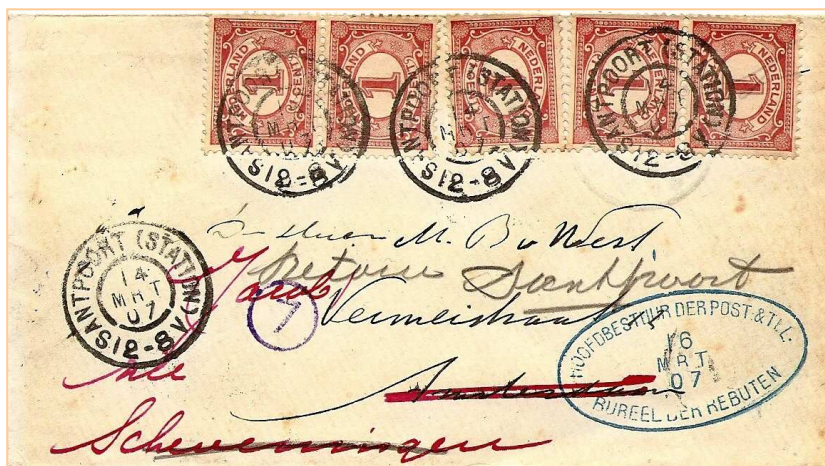 NEDERLAND 1
NEDERLAND 1
NEDERLAND 1
NEDERLAND 1
NEDERLAND 1
SANTPOORT (STATION)
14
MRT
07
12-8V
SANTPOORT (STATION)
14
MRT
07
12-8V
SANTPOORT (STATION)
14
MRT
07
12-8V
SANTPOORT (STATION)
14
MRT
07
12-8V
M. B v West
Retour Santpoort
Jacob
7
Vermeistraat
Amsterdam
Scheveningen
HOOFDBESTUUR DER POST. & TEL.
16
MRT
07
BUREEL DER REBUTEN